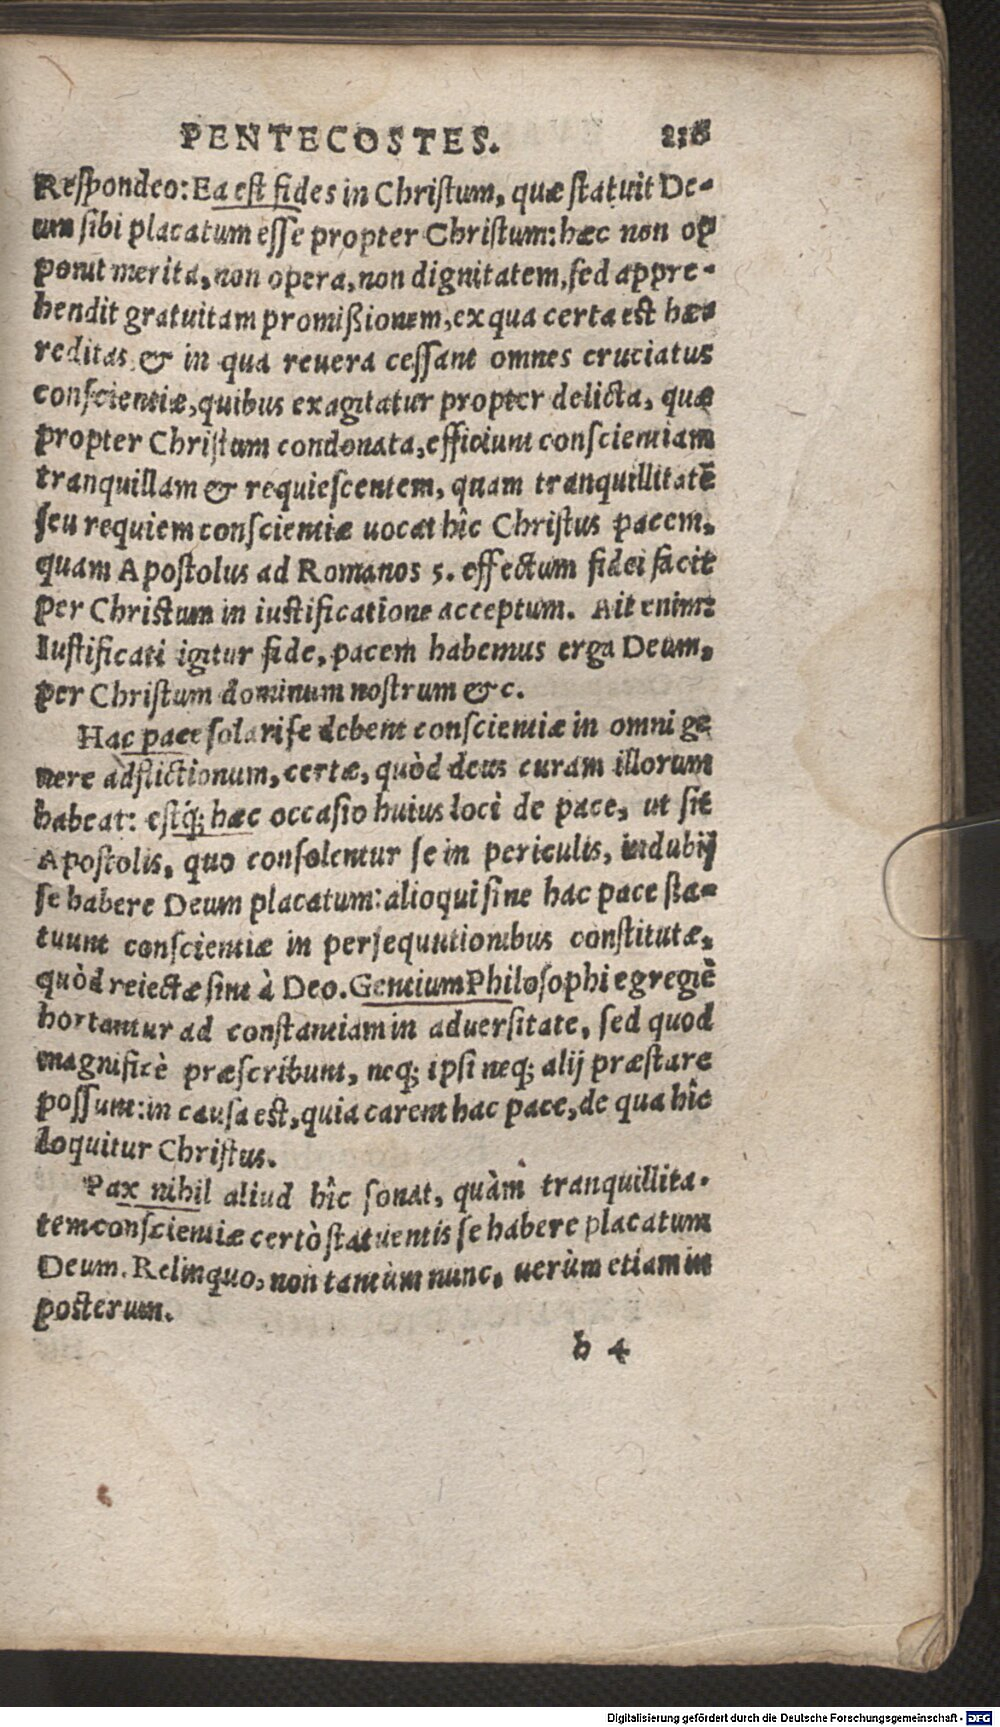 PENTECOSTES. 218
Reſpondeo: Ea est fides in Chriſtum, quæ ſtatuit De-
um ſibi placatum eſſe propter Chriſtum: hæc non op
ponit merita, non opera, non dignitatem, ſed appre-
hendit gratuitam promiſsionem, ex qua certa est hæ-
reditas, & in qua reuera ceſſant omnes cruciatus
conſcientiæ, quibus exagitatur propter delicta, quæ
propter Chriſtum condonata, efficiunt conſcientiam
tranquillam & requieſcentem, quam tranquillitatē
ſeu requiem conſcientiæ uocat hîc Chriſtus pacem,
quam Apoſtolus ad Romanos 5. effectum fidei facit
per Christum in iustificatione acceptum. Ait enim:
Iuſtificati igitur fide, pacem habemus erga Deum,
per Chriſtum dominum noſtrum &c.
Hac pace ſolari ſe debent conſcientiæ in omni ge
nere adflictionum, certæ, quòd deus curam illorum
habeat: eſtq́; hæc occaſio huius loci de pace, ut ſit
Apoſtolis, quo conſolentur ſe in periculis, indubij
ſe habere Deum placatum: alioqui ſine hac pace ſta-
tuunt conſcientiæ in perſequutionibus conſtitutæ,
quòd reiectæ ſint à Deo. Gentium Philoſophi egregiè
hortantur ad conſtantiam in aduerſitate, ſed quod
magnificè præſcribunt, neq; ipſi neq; alij præſtare
poſſunt: in cauſa est, quia carent hac pace, de qua hîc
loquitur Chriſtus.
Pax nihil aliud hîc ſonat, quàm tranquillita-
tem conſcientiæ certò ſtatuentis ſe habere placatum
Deum. Relinquo, non tantùm nunc, uerùm etiam in
posterum.
b 4
Digitalisierung gefördert durch die Deutsche Forschungsgemeinschaft - DFG